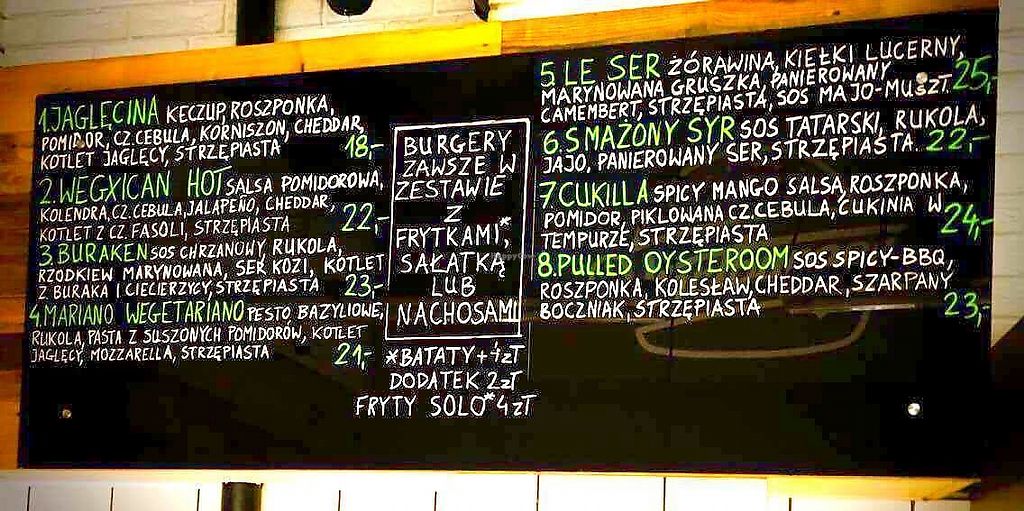 1.JAGLĘCINA KECZUP, ROSZPONKA,
POMIDOR, CZ.CEBULA, KORNISZON, CHEDDAR,
KOTLET JAGLĘCY, STRZĘPIASTA 18,-
2.WEGXICAN HOT SALSA POMIDOROWA,
KOLENDRA, CZ.CEBULA, JALAPEÑO, CHEDDAR,
KOTLET Z CZ. FASOLI, STRZĘPIASTA 22,-
3.BURAKEN SOS CHRZANOWY, RUKOLA,
RZODKIEW MARYNOWANA, SER KOZI, KOTLET
Z BURAKA I CIECIERZYCY, STRZĘPIASTA 23,-
4.MARIANO WEGETARIANO PESTO BAZYLIOWE,
RUKOLA, PASTA Z SUSZONYCH POMIDORÓW, KOTLET
JAGLĘCY, MOZZARELLA, STRZĘPIASTA 21,-
BURGERY
ZAWSZE W
ZESTAWIE
Z
FRYTKAMI*,
SAŁATKĄ
LUB
NACHOSAMI
*BATATY +4zł
DODATEK 2zł
FRYTY SOLO* 4zł
5 LE SER ŻÓRAWINA, KIEŁKI LUCERNY,
MARYNOWANA GRUSZKA, PANIEROWANY
CAMEMBERT, STRZĘPIASTA, SOS MAJO-MUSZT. 25,-
6.SMAŻONY SYR SOS TATARSKI, RUKOLA,
JAJO, PANIEROWANY SER, STRZĘPIASTA. 22,-
7 CUKILLA SPICY MANGO SALSA, ROSZPONKA,
POMIDOR, PIKLOWANA CZ.CEBULA, CUKINIA W
TEMPURZE, STRZĘPIASTA 24,-
8.PULLED OYSTEROOM SOS SPICY-BBQ,
ROSZPONKA, KOLESŁAW, CHEDDAR, SZARPANY
BOCZNIAK, STRZĘPIASTA 23,-